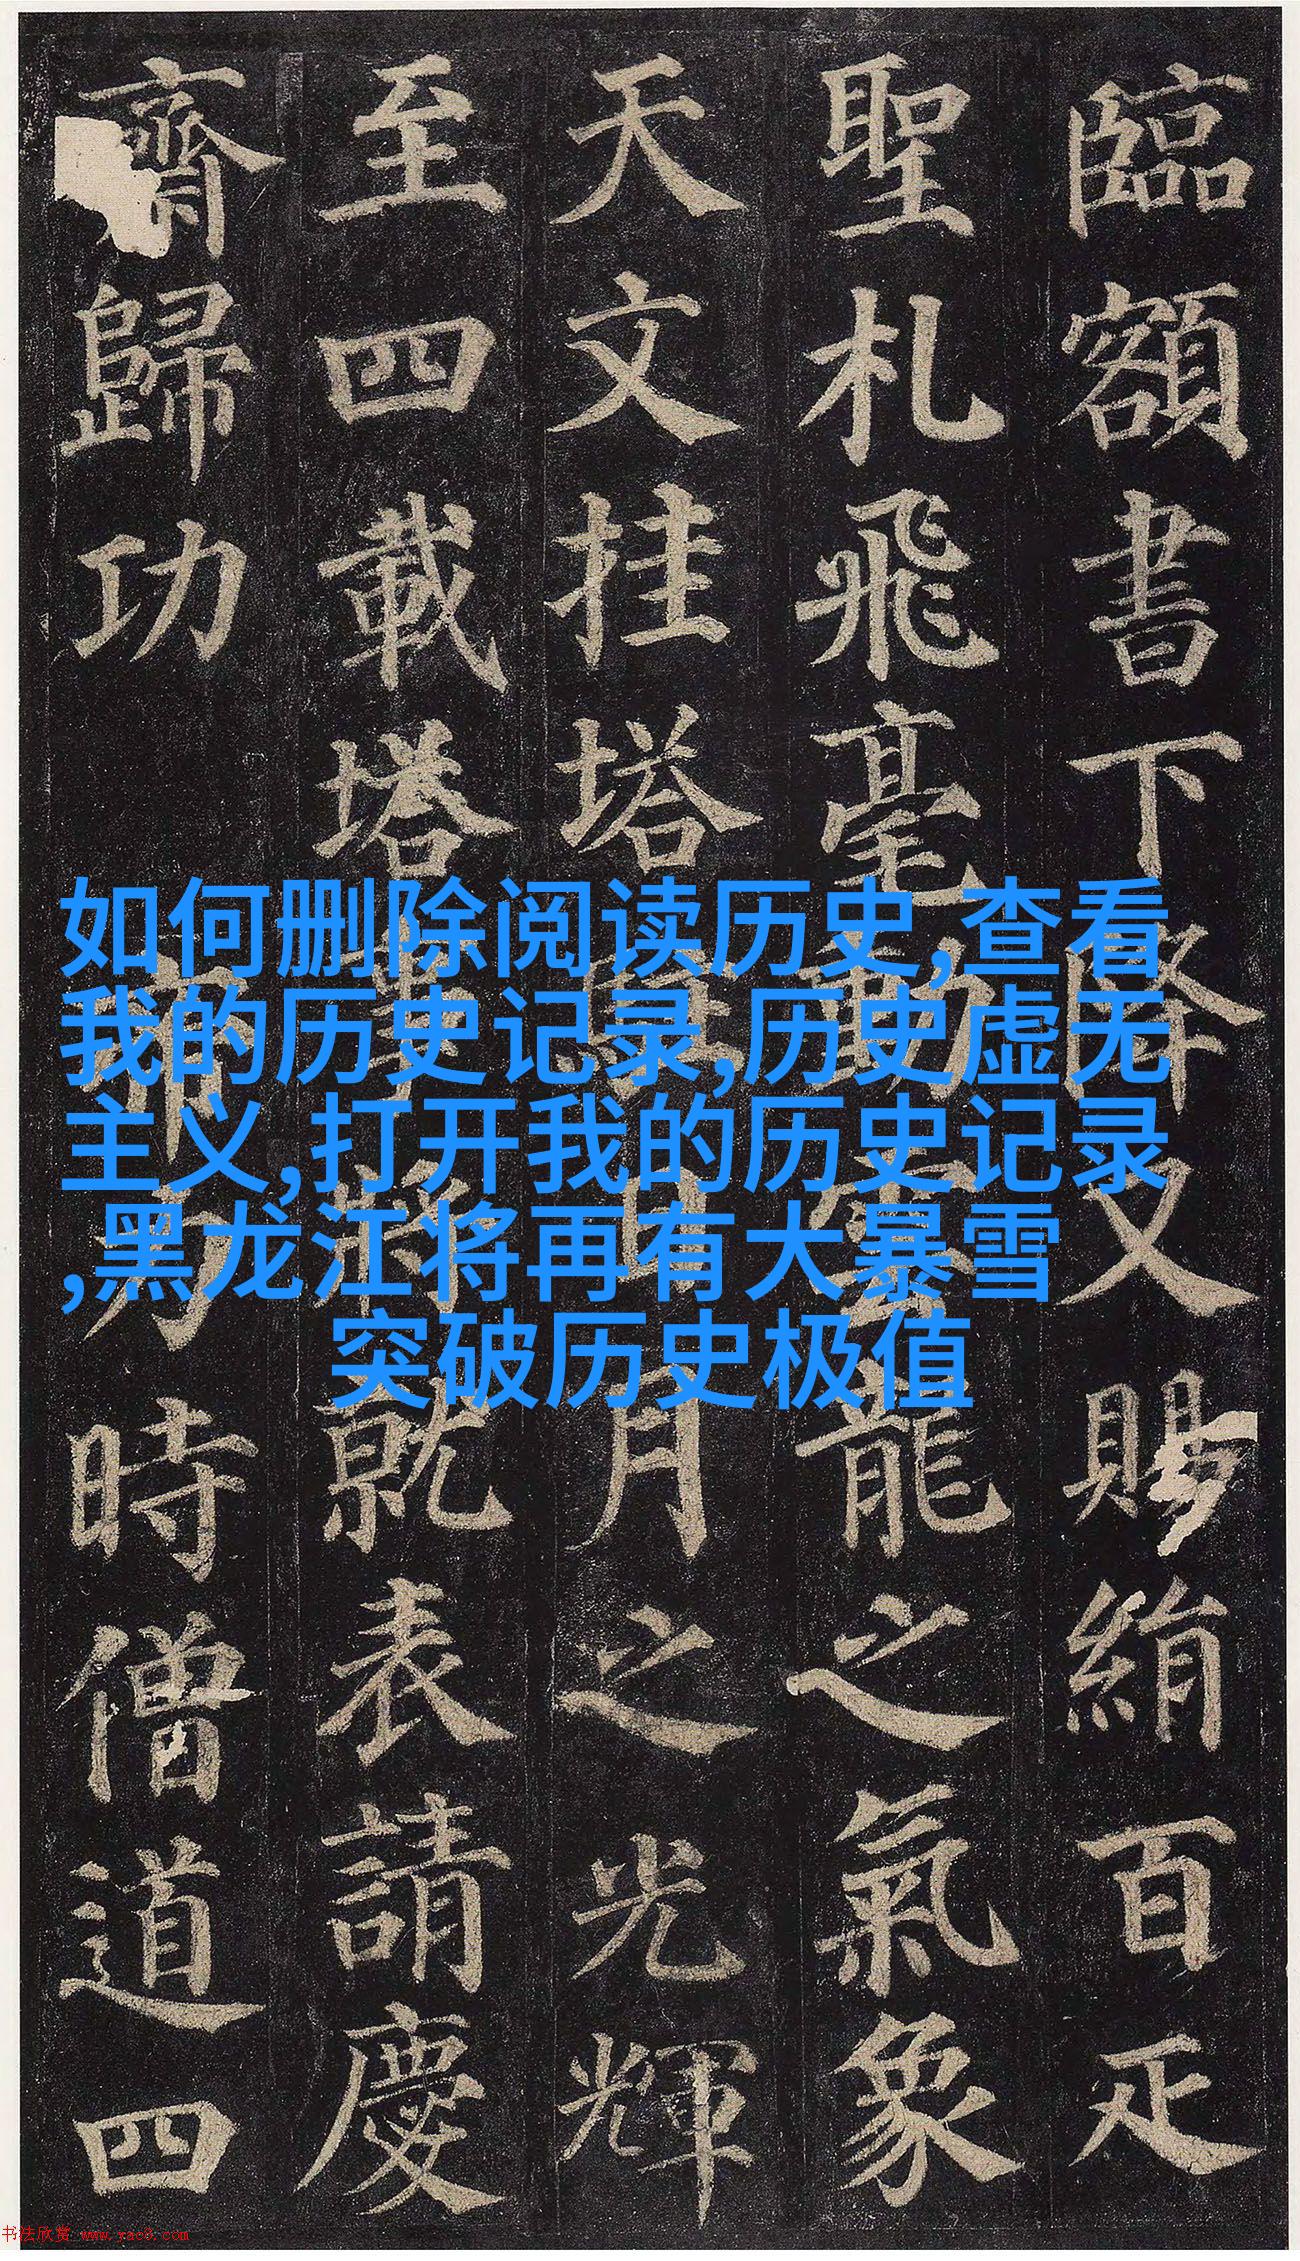 臨額書下降又賜絹百疋
聖札飛毫動雲龍之氣象
天文挂塔駐日月之光輝
至四載塔事將就表請慶
齋歸功帝力時僧道四
如何删除阅读历史,查看
我的历史记录,历史虚无
主义,打开我的历史记录
,黑龙江将再有大暴雪
突破历史极值
书法欣赏 www.yac8.com